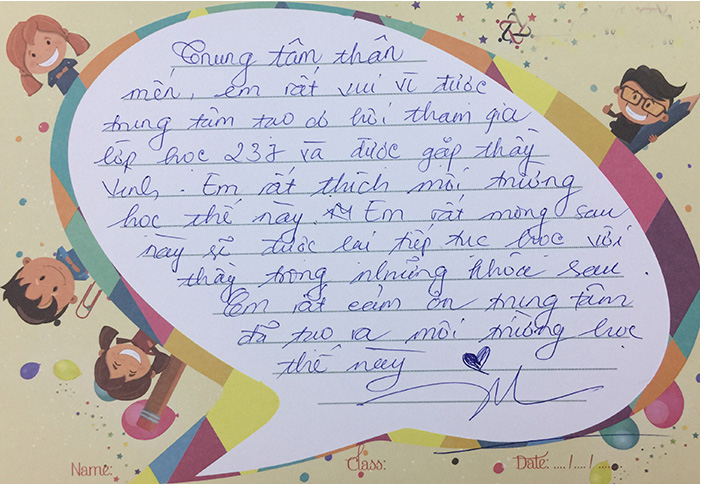 Trung tâm thân
mến, em rất vui vì được
trung tâm tạo cơ hội tham gia
lớp học 237 và được gặp thầy
Vinh. Em rất thích môi trường
học thế này. Em rất mong sau
này sẽ được lại tiếp tục học với
thầy trong những khóa sau
Em rất cảm ơn trung tâm
đã tạo ra môi trường học
thế này
Name:
Class:
Date: .... / .... / ....